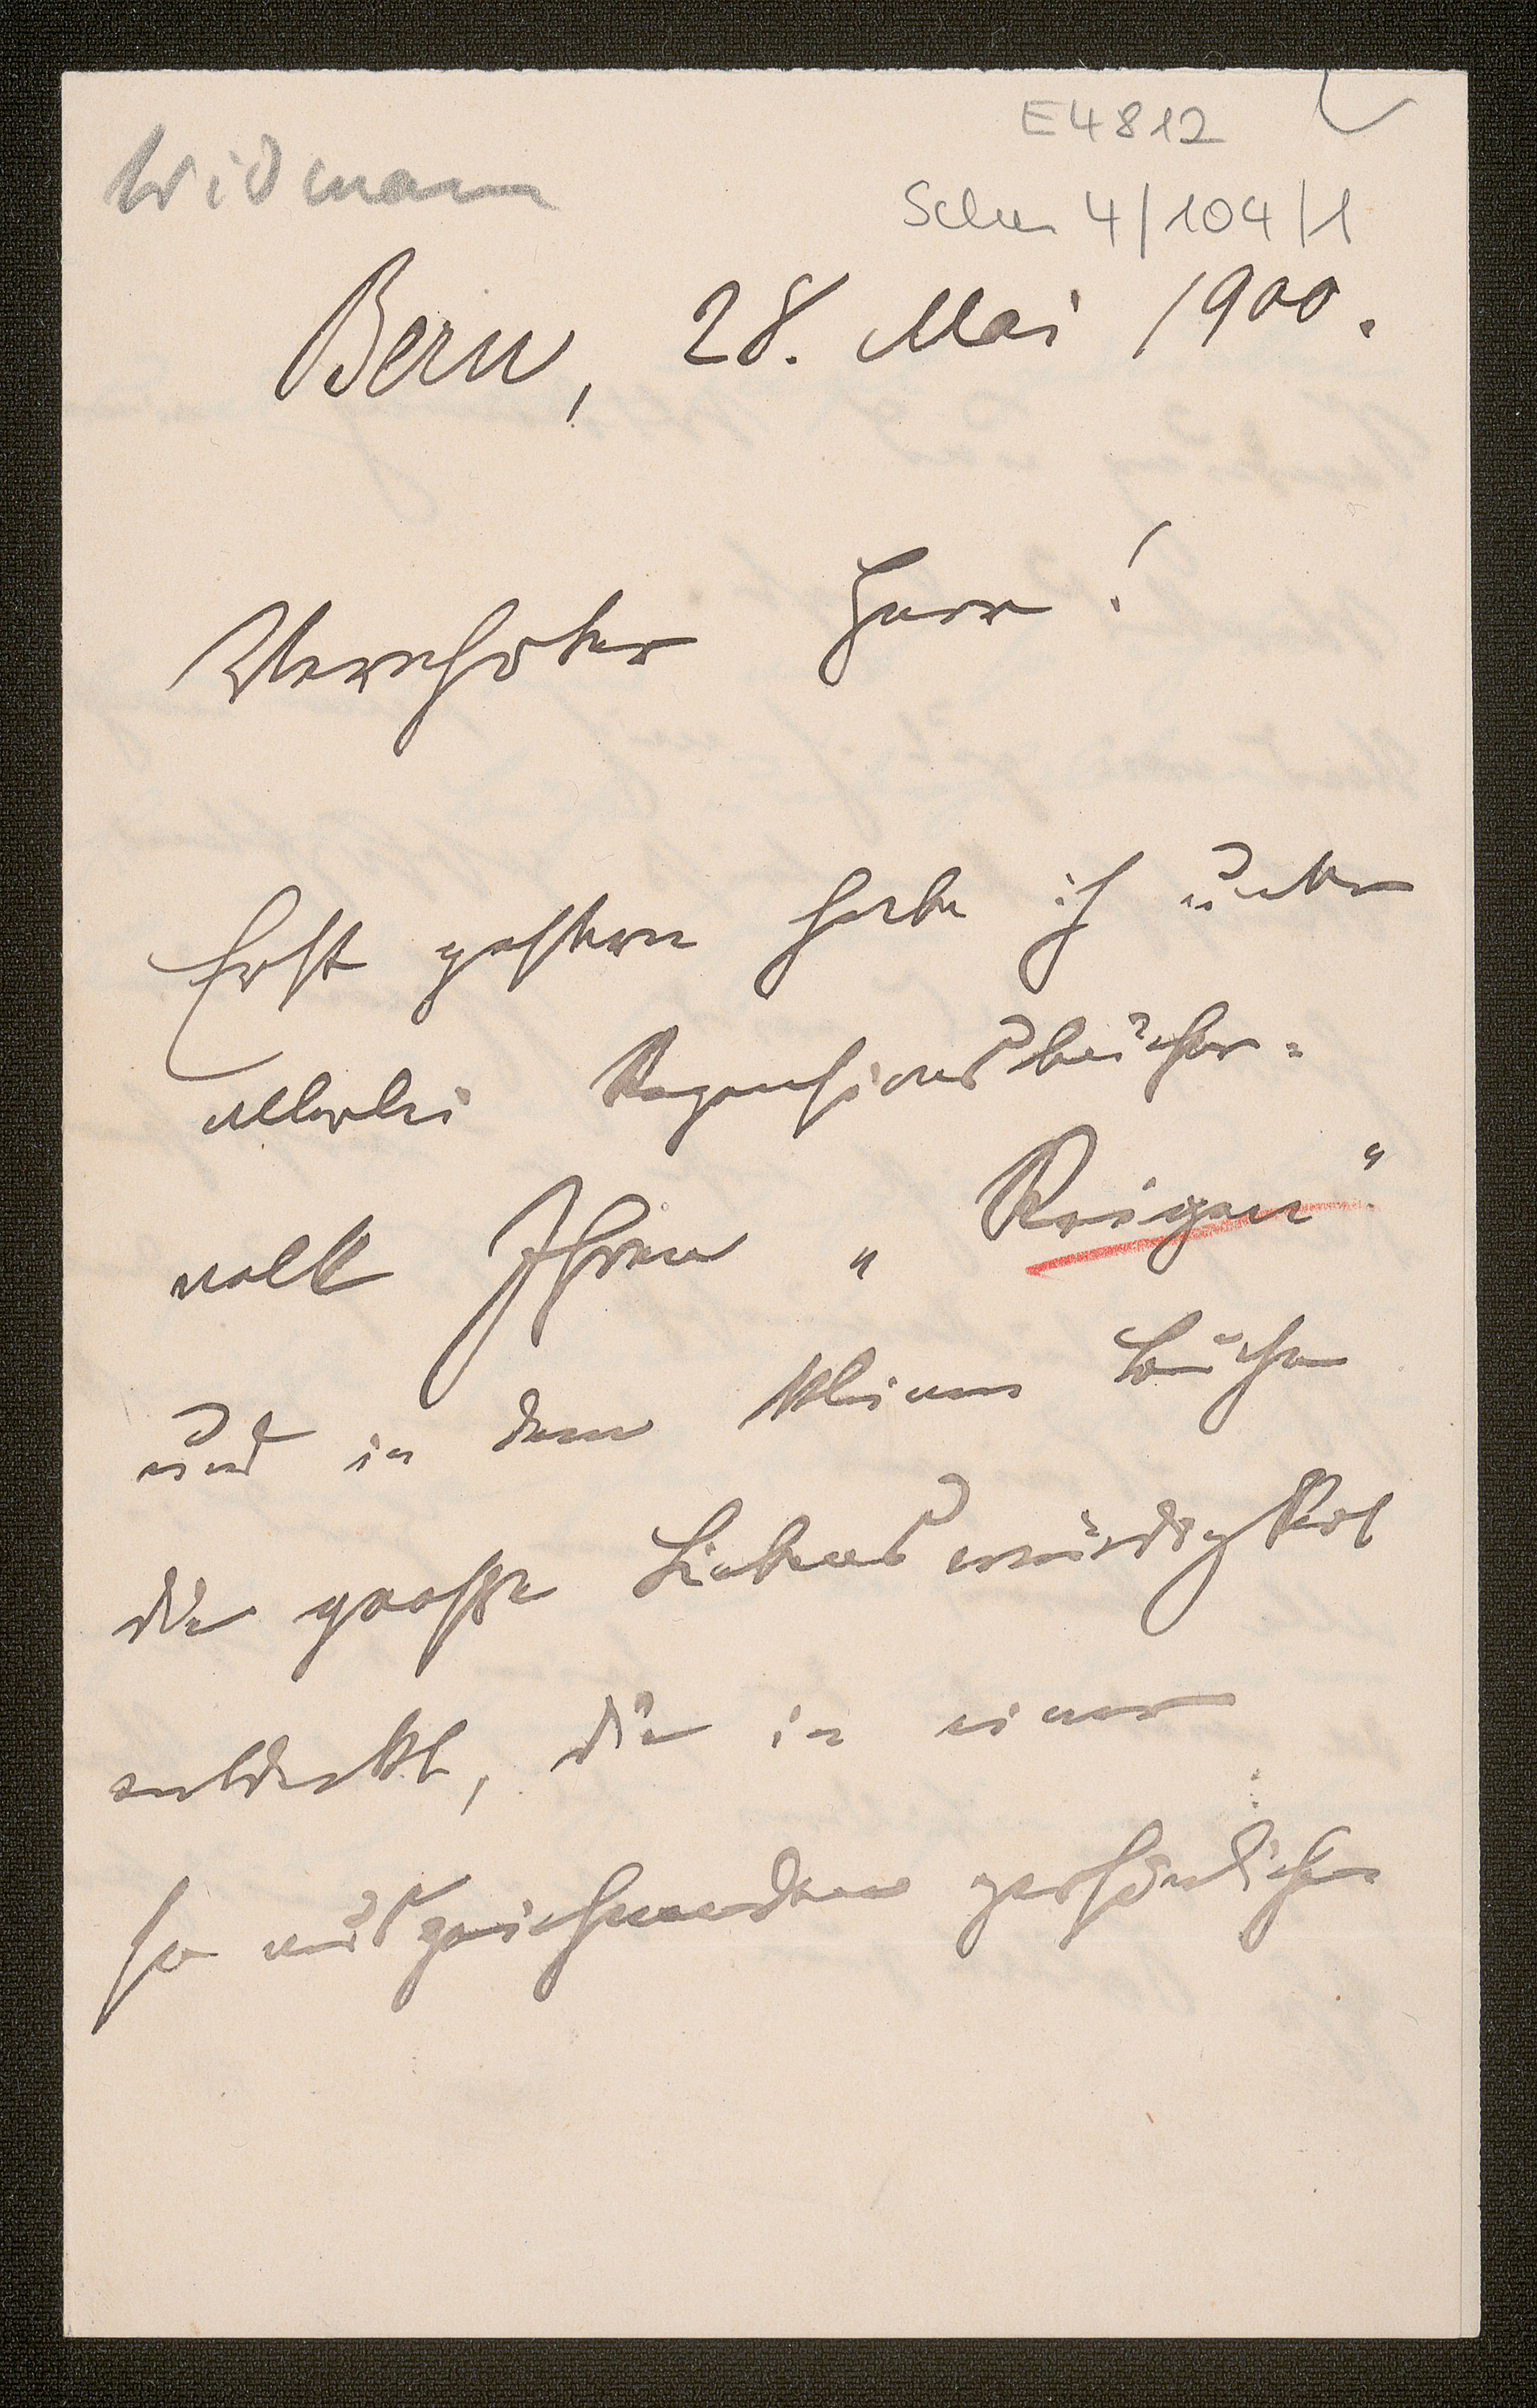 E4812
Widmann
Schn 4/104/1
Bern, 28. Mai 1900.
Verehrter Herr!
Erst gestern habe ich unter
allerlei Rezensionsbücher-
volk Ihren „Reigen“
und in dem kleinen Buche
die große Liebenswürdigkeit
entdeckt, die in einer
so auszeichnenden persönlichen